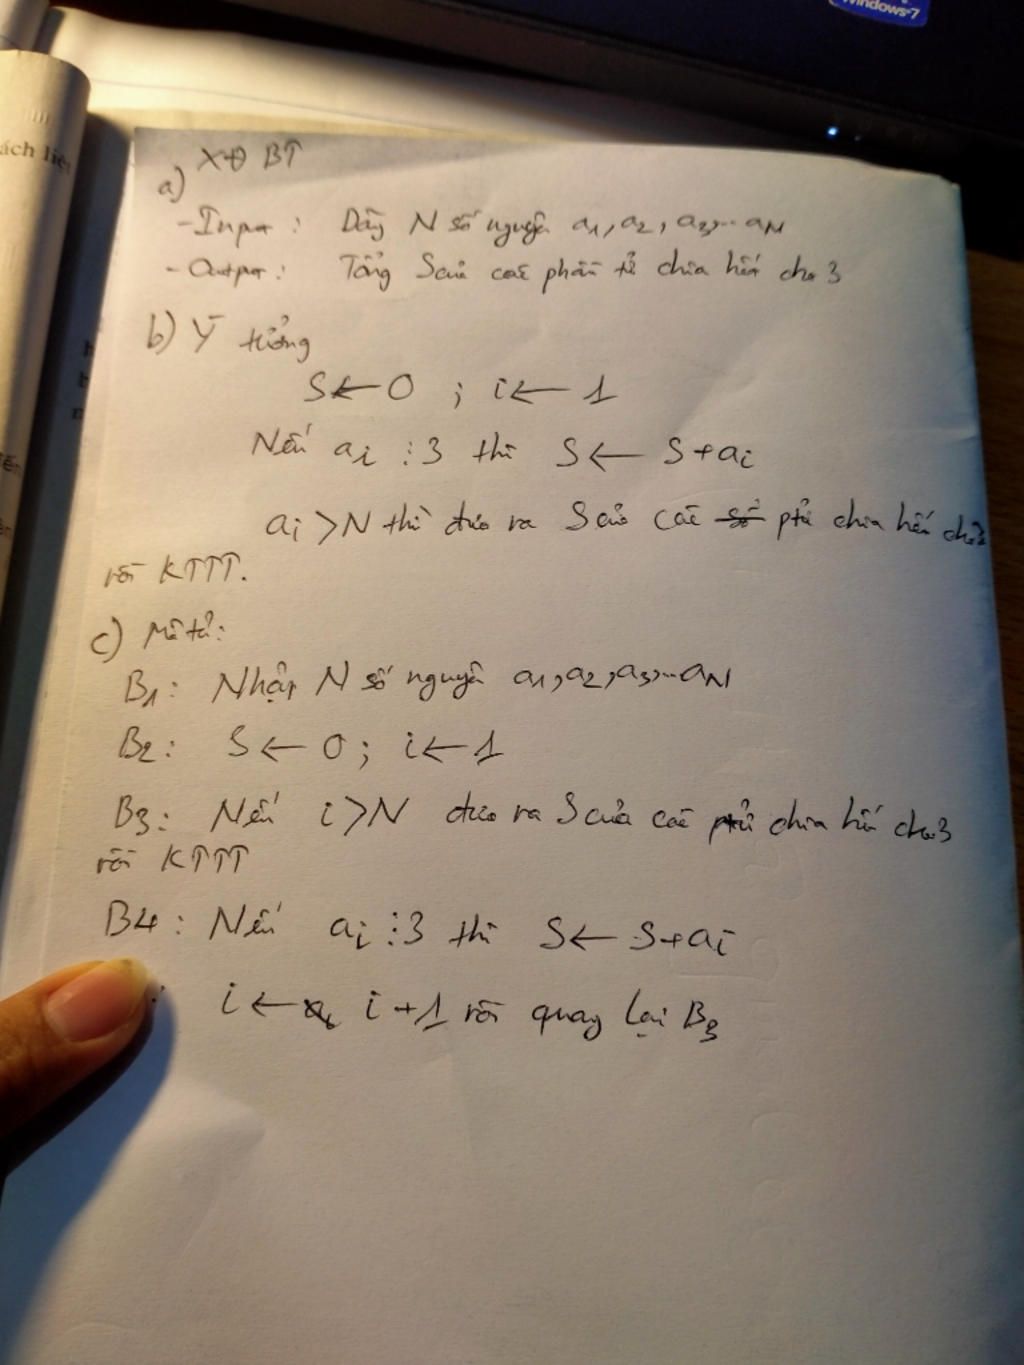 Windows 7
ách liệ
XĐ BT
a)
- Input : Dãy N số nguyên a1, a2, a3,... aN
- Output : Tổng S của các phần tử chia hết cho 3
b) Ý tưởng
S ← 0 ; i ← 1
Nếu ai ⋮ 3 thì S ← S + ai
ai > N thì đưa ra S của các số ptử chia hết cho 3
rồi KTTT.
c) Mô tả :
B1 : Nhập N số nguyên a1, a2, a3,... aN
B2 : S ← 0 ; i ← 1
B3 : Nếu i > N đưa ra S của các ptử chia hết cho 3
rồi KTTT
B4 : Nếu ai ⋮ 3 thì S ← S + ai
i ← i + 1 rồi quay lại B3